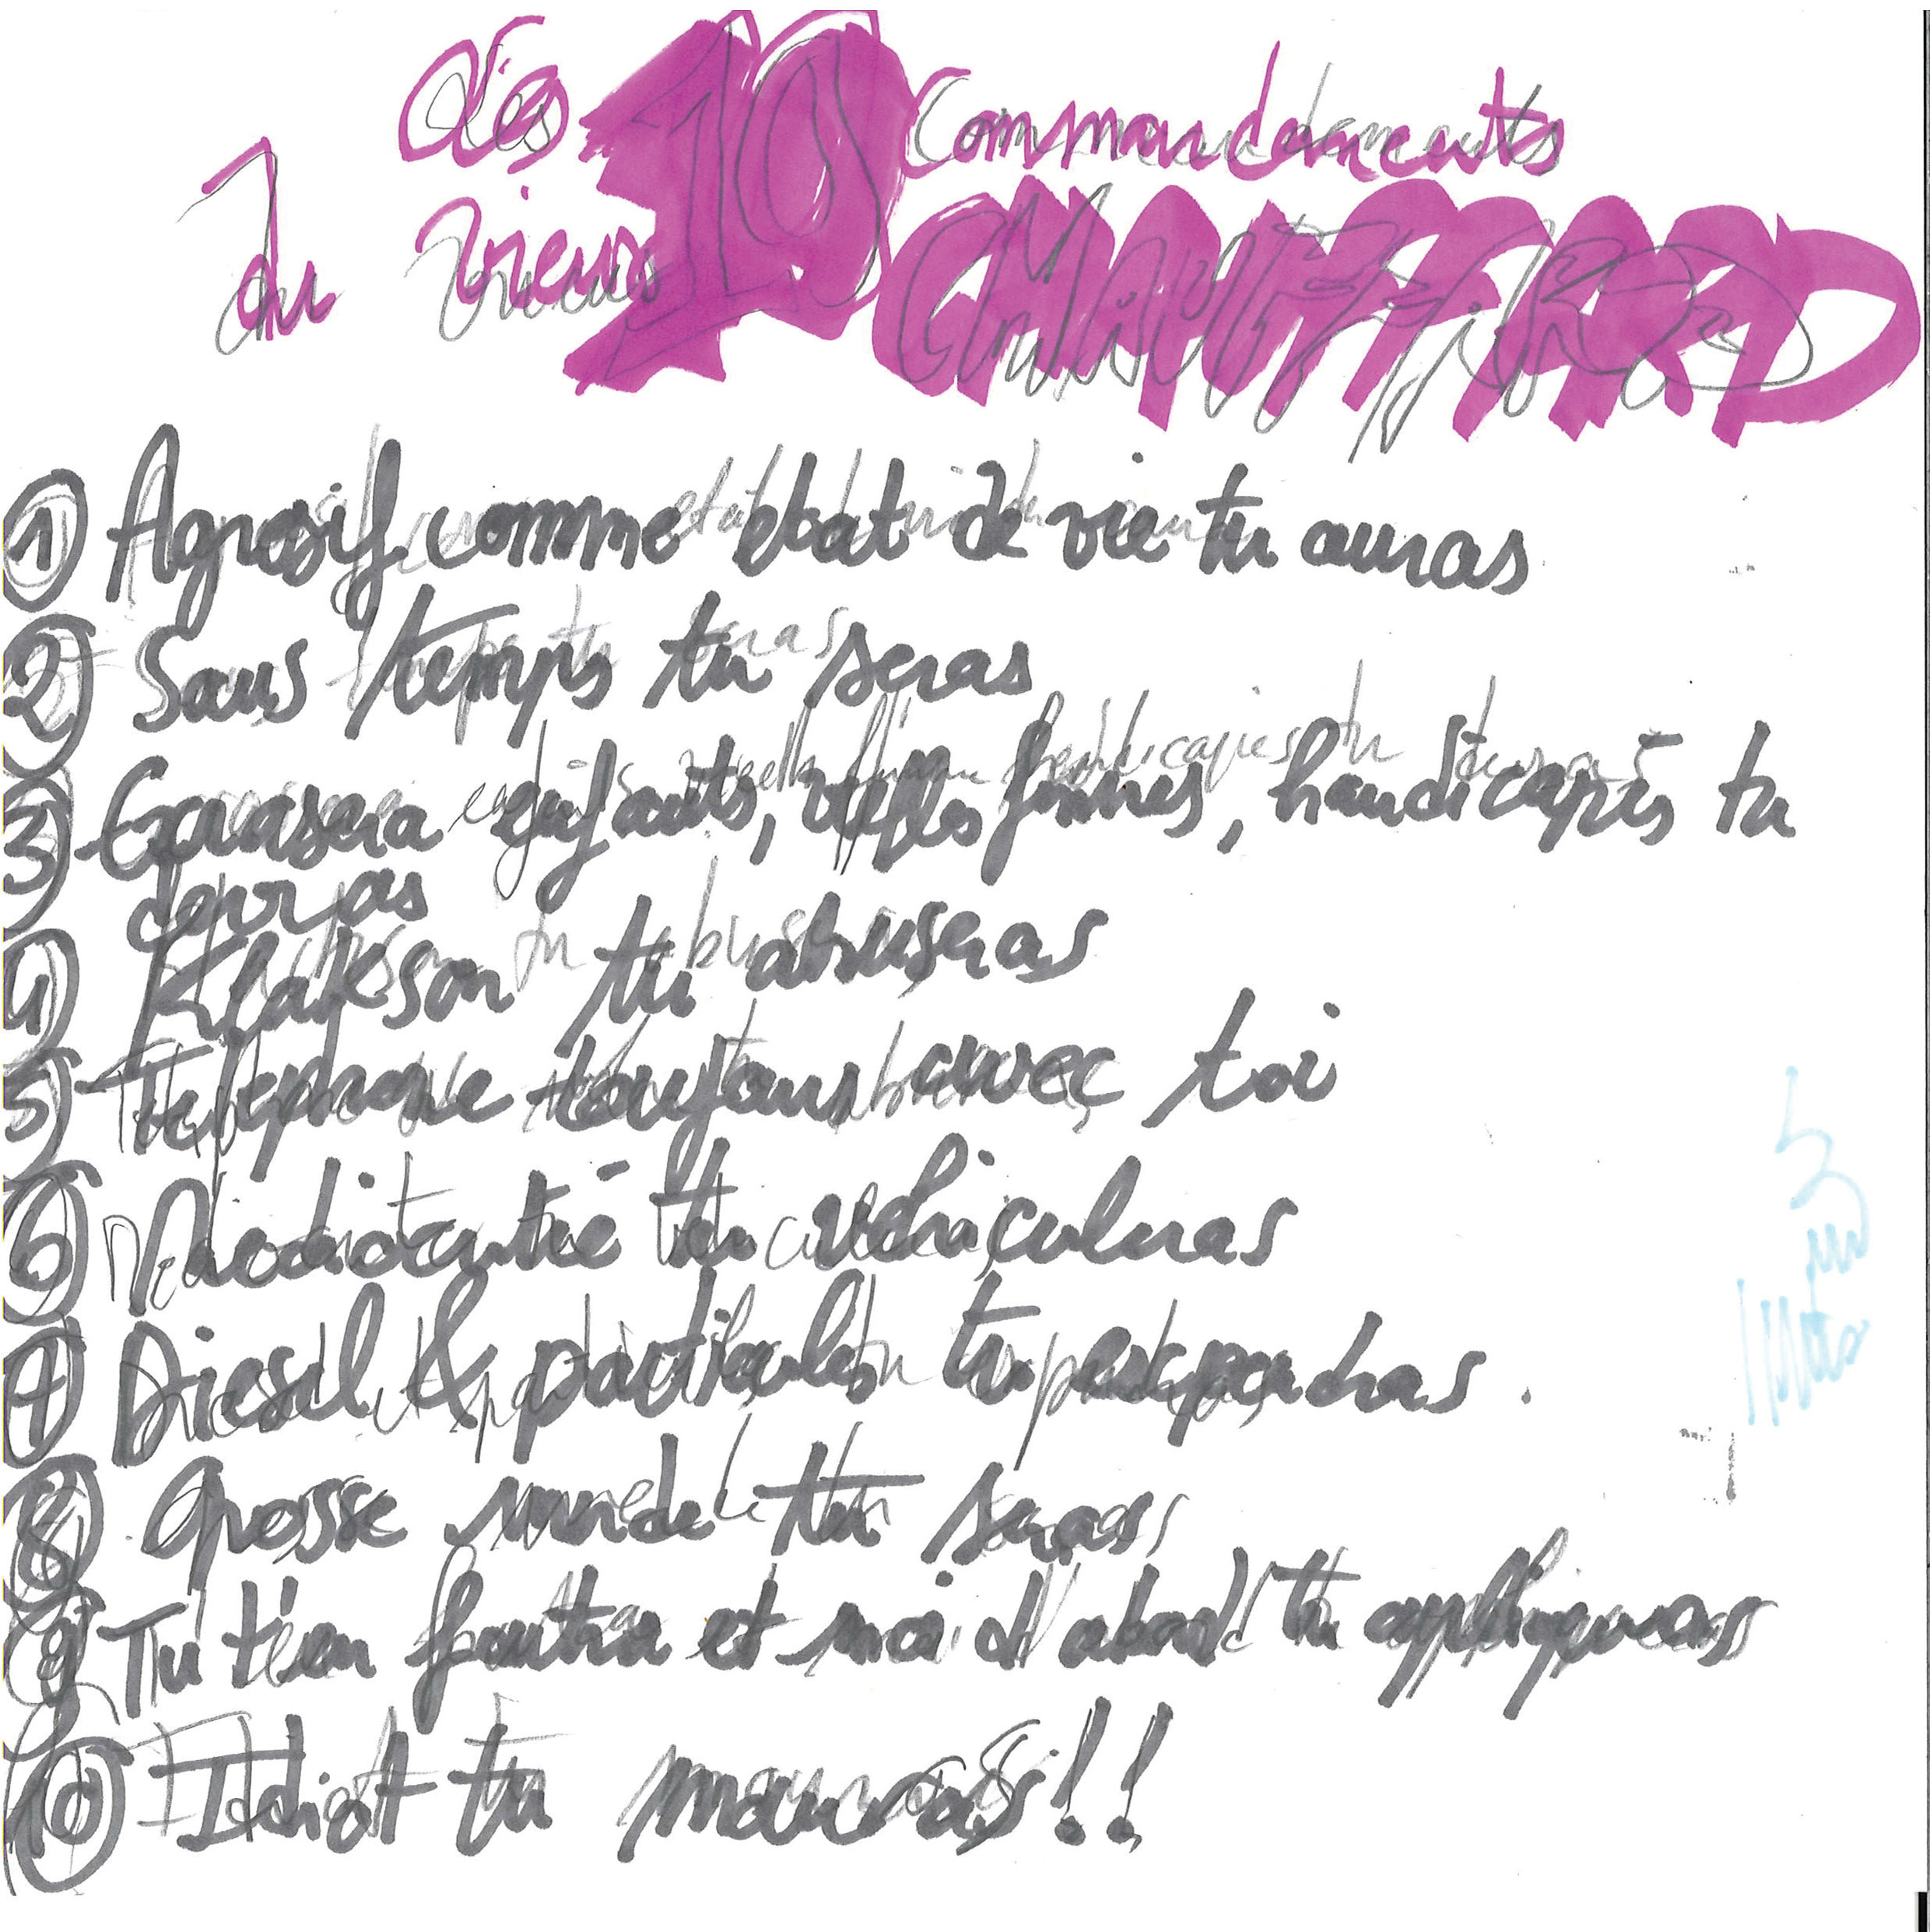 Les 10 Commandements
du vieux CHAUFFARD
① Agresif comme etat de vie tu auras
② Sans temps tu seras
③ Ecrasera enfants, vielles femmes, handicapés tu
devras
④ Klakson tu abuseras
⑤ Telephone toujours avec toi
⑥ Mediocrité tu véhiculeras
⑦ Diesel & particules tu repandras.
⑧ Grosse merde tu seras
⑨ Tu t'en foutra et moi d'abord tu appliqueras
⑩ Idiot tu mourras!!